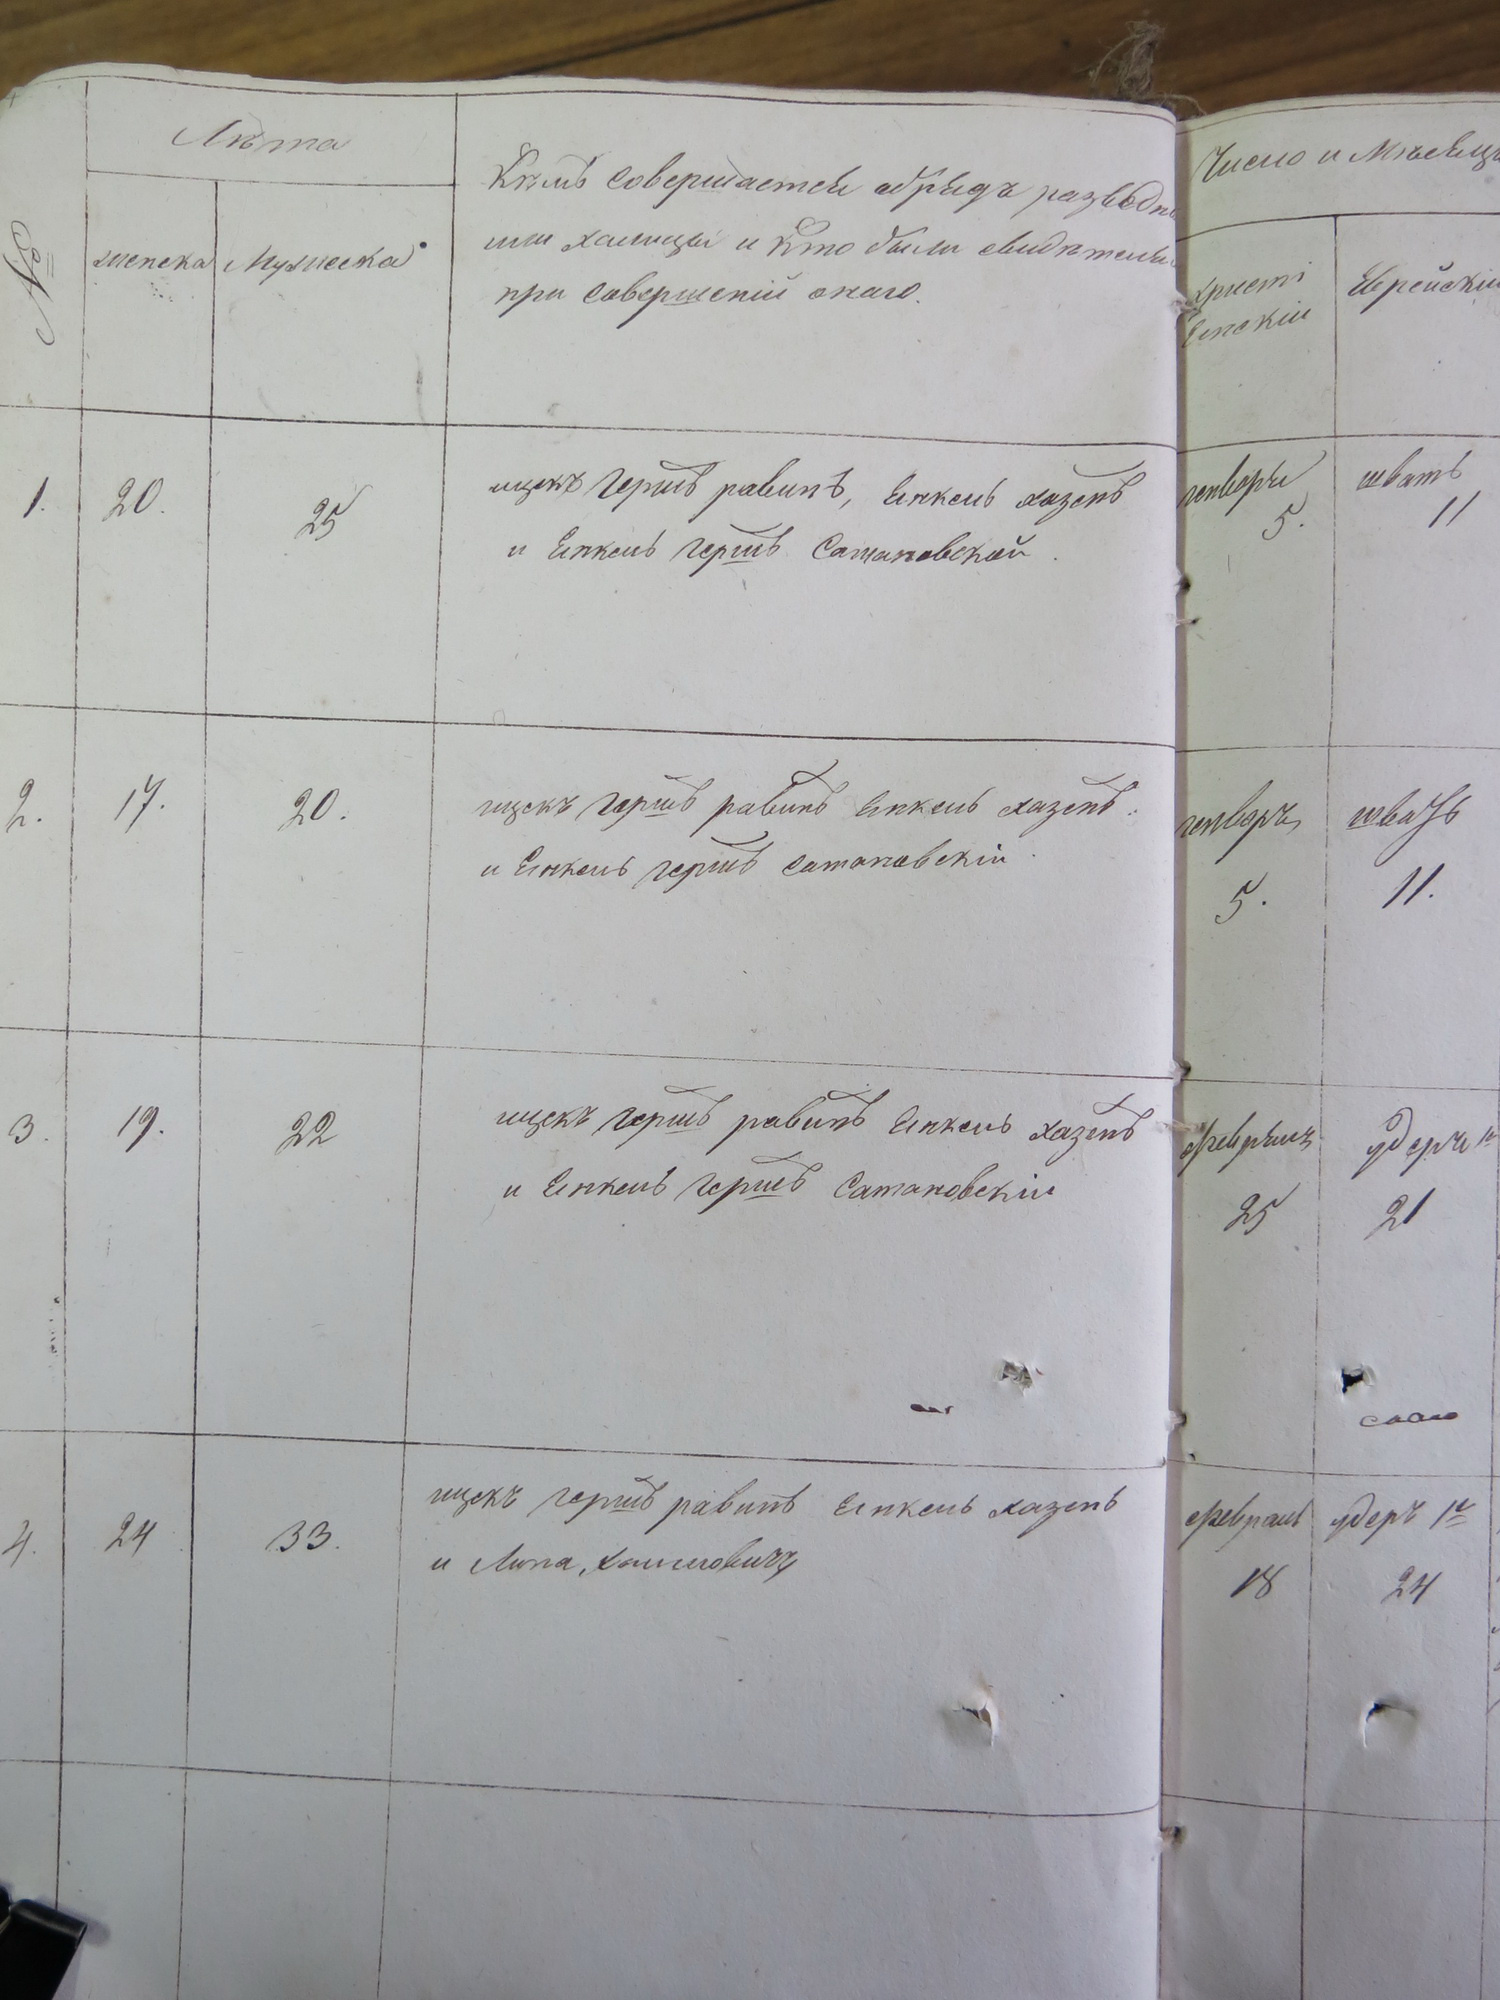 №
Лѣта
женска
Мужеска
Кѣмъ совершается обрядъ разводн
или халицы и кто были свидѣтели
при совершеній онаго.
Число и Мѣсяцъ
христі
янскій
Еврейскій
1.
20.
25
ицекъ Гершъ равинъ, Янкель хазенъ
и Янкель Гершъ Сатановской.
генваря
5.
шватъ
11
2.
17.
20.
ицекъ Гершъ равинъ Янкель хазенъ
и Янкель Гершъ Сатановскій
генваря
5.
шватъ
11.
3.
19.
22
ицекъ Гершъ равинъ Янкель хазенъ
и Янкель Гершъ Сатановскій
февраля
25
адеръ 1й
21
4.
24
33.
ицекъ Гершъ равинъ Янкель хазенъ
и Липа Хаимовичъ
февраль
18
адеръ 1й
24